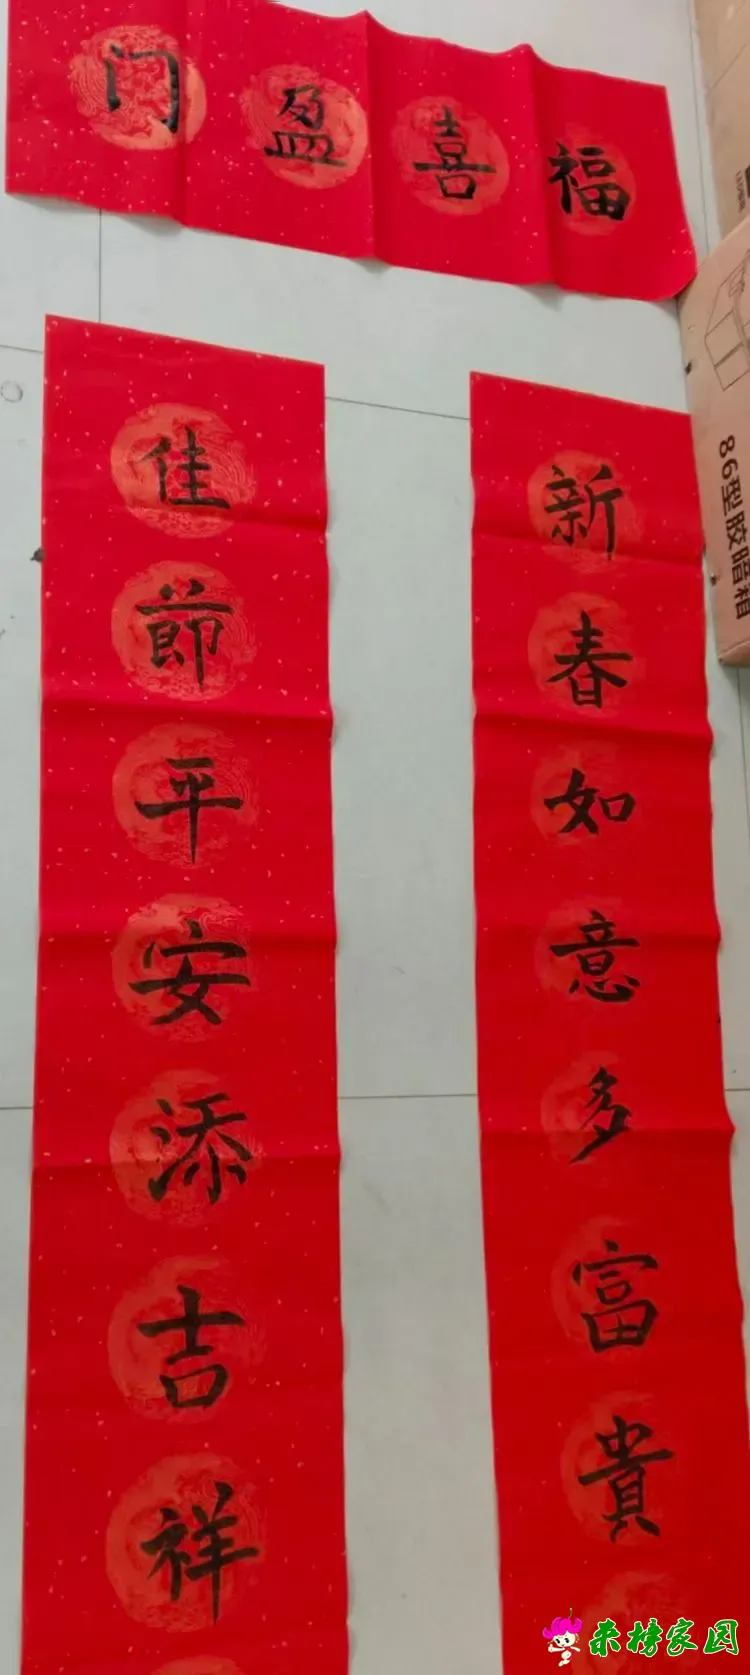 福喜盈门
新春如意多富貴
佳節平安添吉祥
86型胶暗箱
来榜家园